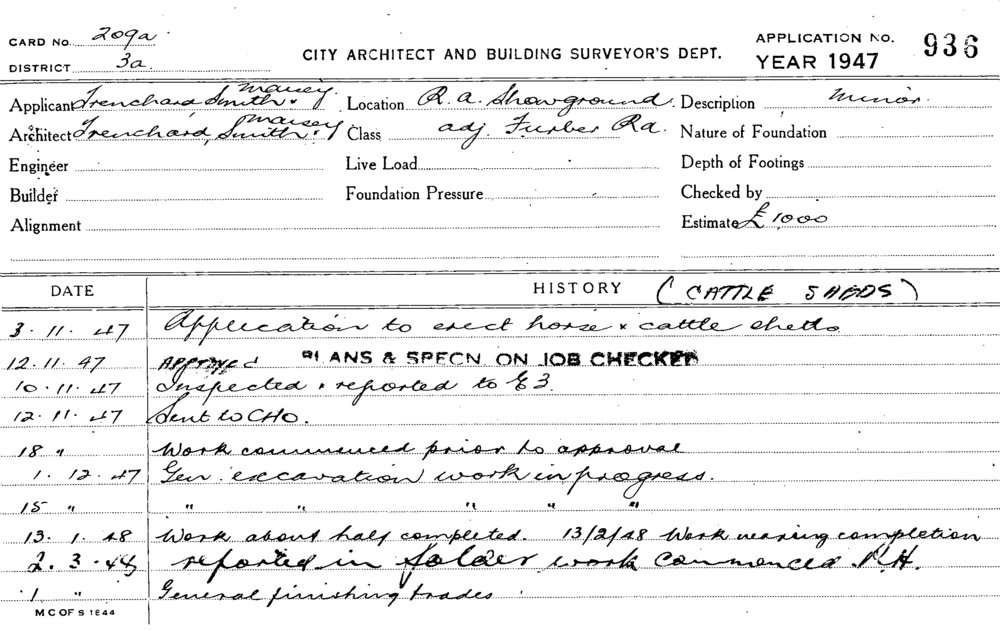 CARD NO. 209a
DISTRICT 3a
CITY ARCHITECT AND BUILDING SURVEYOR'S DEPT.
APPLICATION NO. 936
YEAR 1947
Applicant Trenchard Smith & Maisey Location R.A. Showground Description Minor.
Architect Trenchard, Smith & Maisey Class adj. Furber Rd. Nature of Foundation
Engineer Live Load Depth of Footings
Builder Foundation Pressure Checked by
Alignment Estimate £1000
DATE HISTORY (CATTLE SHEDS)
3.11.47 Application to erect horse & cattle sheds
12.11.47 Approved PLANS & SPECN. ON JOB CHECKED
10.11.47 Inspected & reported to E3
12.11.47 Sent to CHO.
18 " Work commenced prior to approval
1.12.47 Gen. excavation work in progress.
15 " " " " " "
13.1.48 Work about half completed. 13/2/48 Work nearing completion
2.3.48 reported in folder work commenced P.H.
1 " General finishing trades
M C OF S 1844